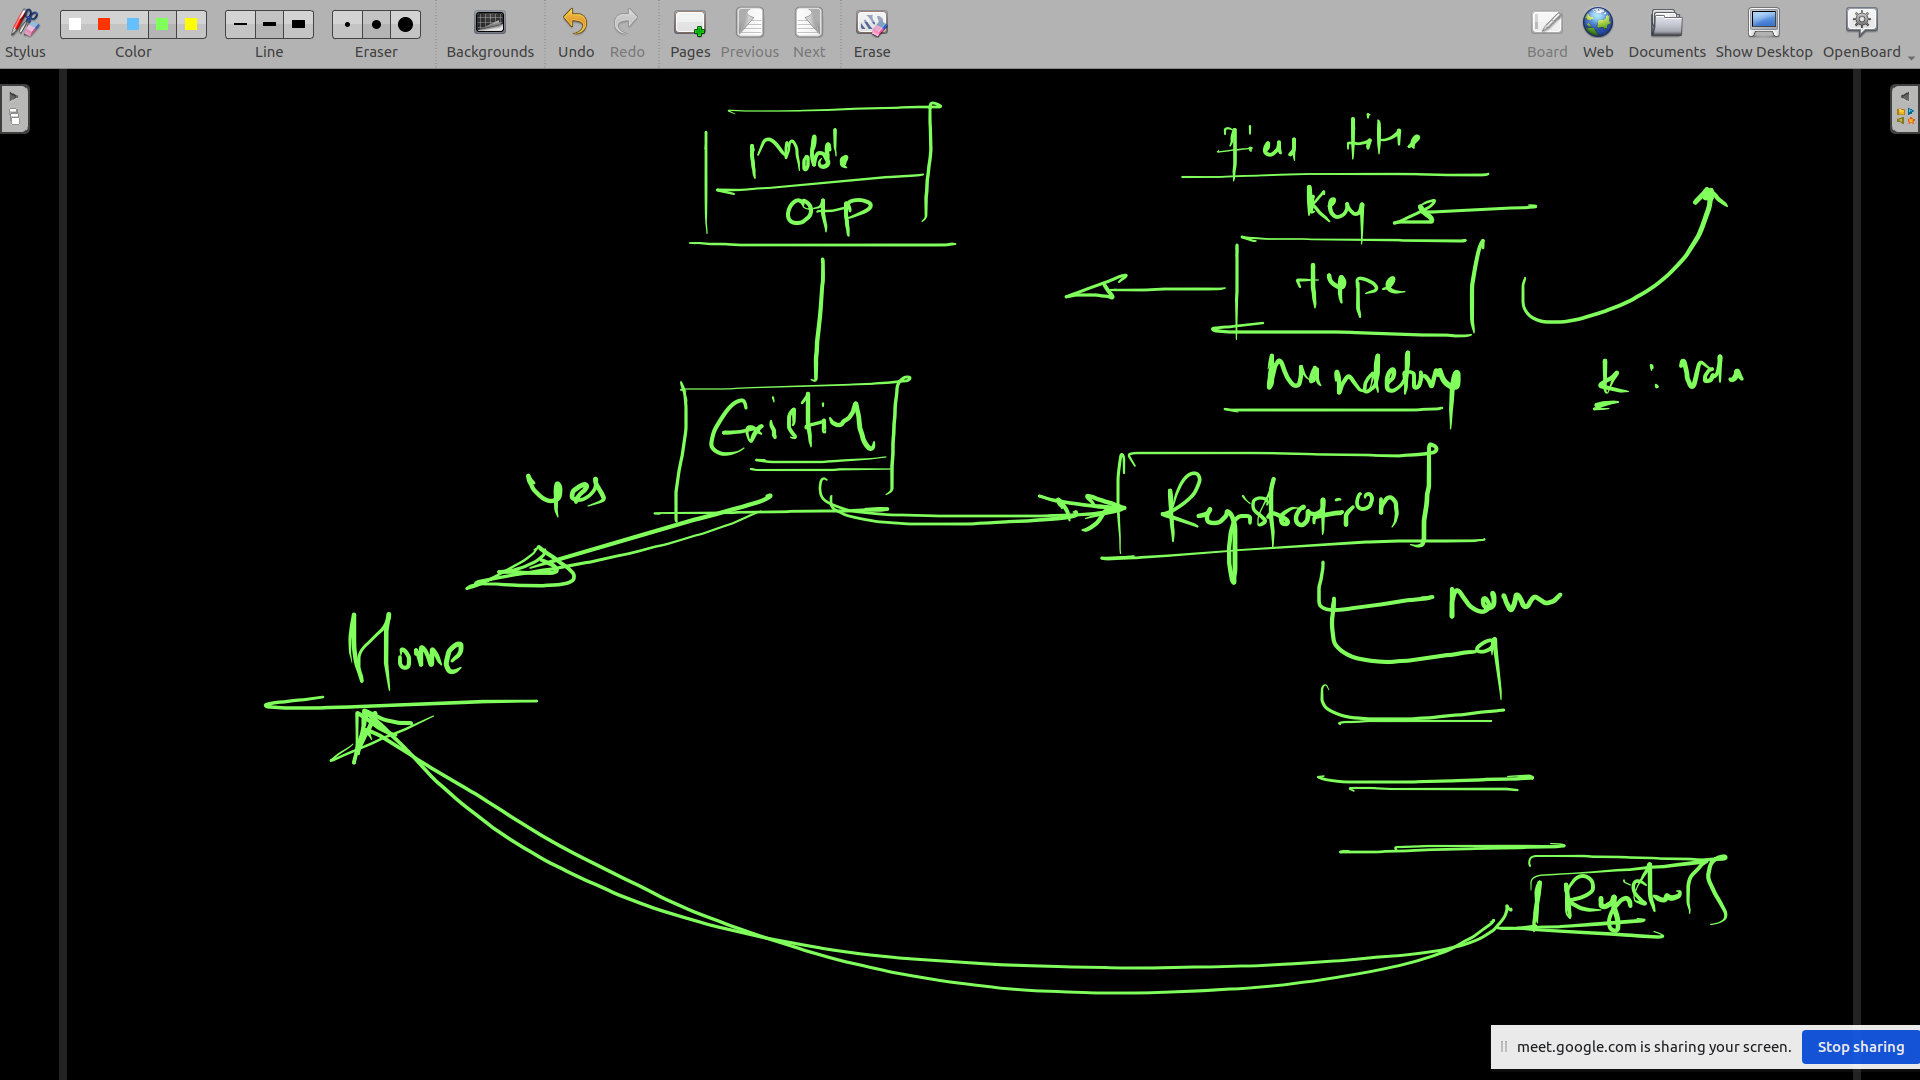 Stylus Color Line Eraser Backgrounds Undo Redo Pages Previous Next Erase Board Web Documents Show Desktop OpenBoard
Mobile
OTP
Field title
Key
type
Mandetory
K : Value
Existing
Yes
Registration
Name
Home
Register
meet.google.com is sharing your screen. Stop sharing